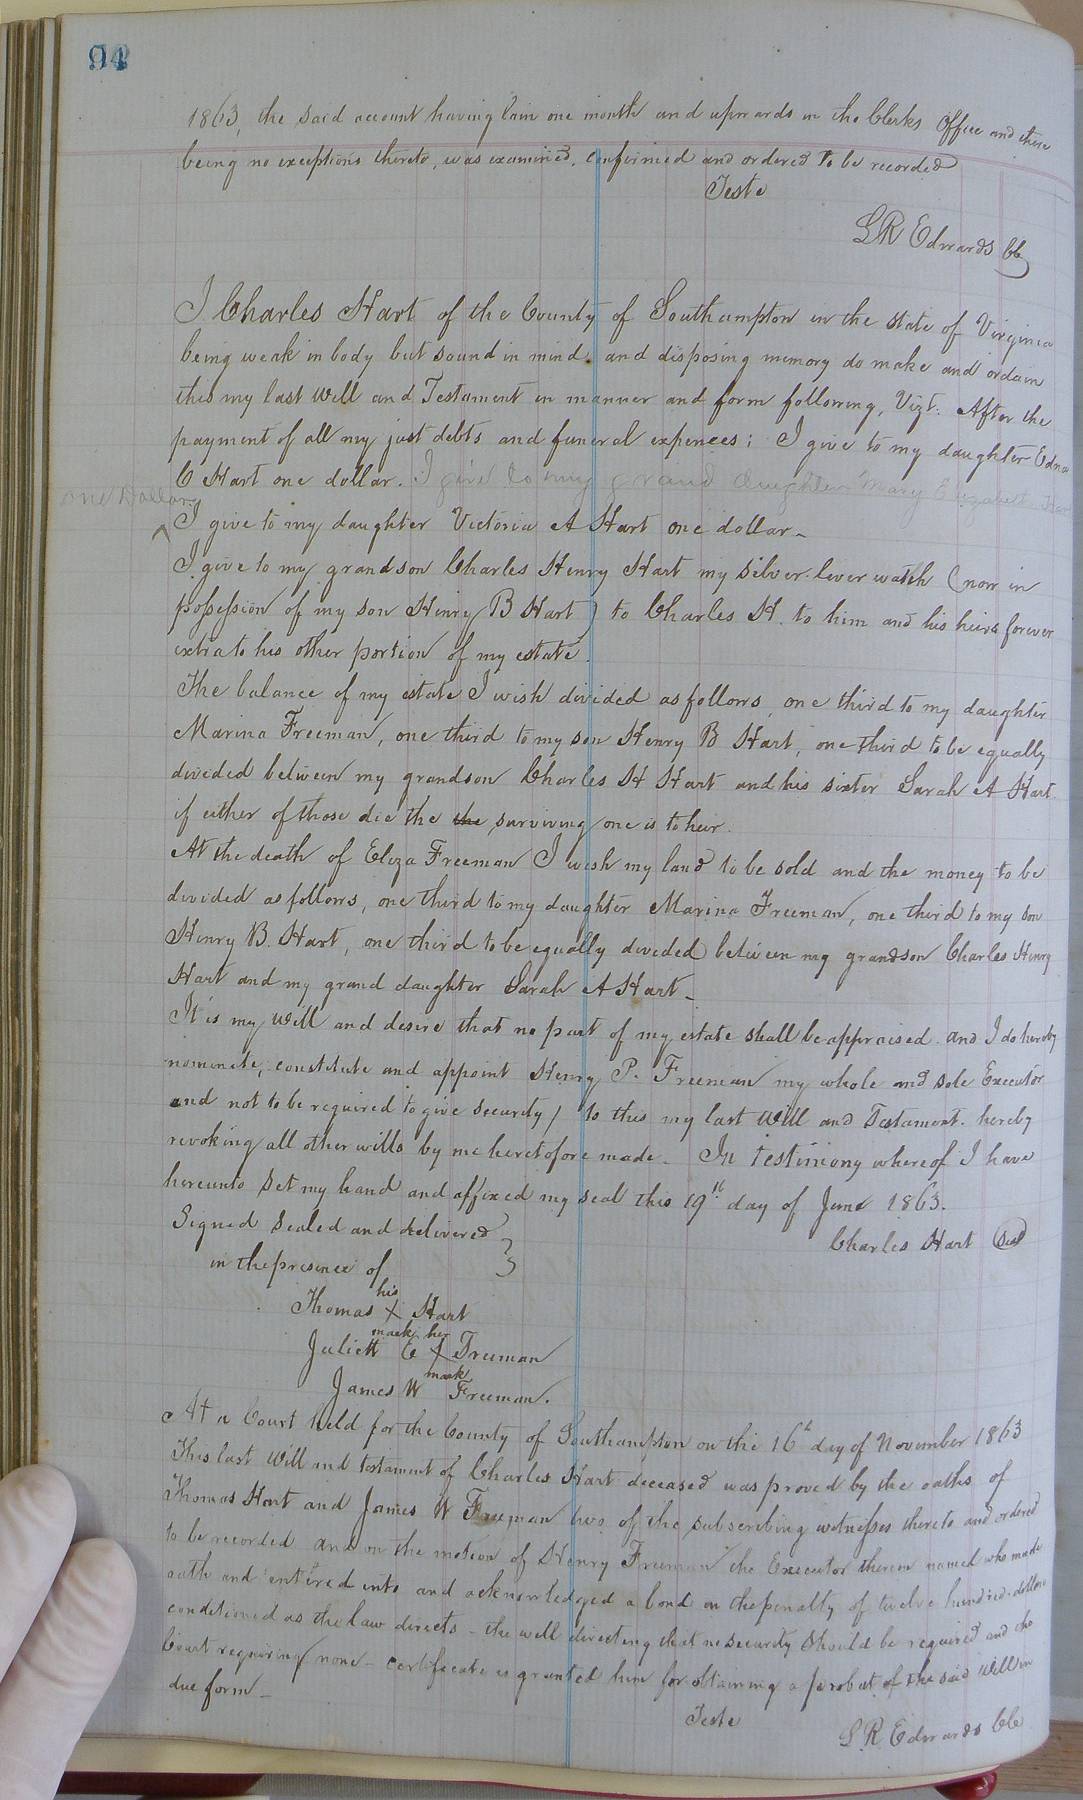 94
1863, the said account having lain one month and upwards in the Clerks Office and there
being no exceptions thereto, was examined, confirmed and ordered to be recorded
Teste
L R Edwards CC
I Charles Hart of the County of Southampton in the state of Virginia
being weak in body but sound in mind and disposing memory do make and ordain
this my last Will and Testament in manner and form following, Vizt. After the
payment of all my just debts and funeral expences; I give to my daughter Edna
C Hart one dollar. I give to my grand daughter Mary Elizabeth Hart
one Dollar
I give to my daughter Victoria A Hart one dollar -
I give to my grandson Charles Henry Hart my silver lever watch (now in
possession of my son Henry B Hart) to Charles H. to him and his heirs forever
extra to his other portion of my estate.
The balance of my estate I wish divided as follows, one third to my daughter
Marina Freeman, one third to my son Henry B Hart, one third to be equally
divided between my grandson Charles H Hart and his sister Sarah A Hart.
if either of those die the the surviving one is to heir.
At the death of Eliza Freeman I wish my land to be sold and the money to be
divided as follows, one third to my daughter Marina Freeman, one third to my son
Henry B. Hart, one third to be equally divided between my grandson Charles Henry
Hart and my grand daughter Sarah A Hart -
It is my will and desire that no part of my estate shall be appraised. and I do hereby
nominate, constitute and appoint Henry P. Freeman my whole and sole Executor
and not to be required to give security) to this my last Will and Testament. hereby
revoking all other wills by me heretofore made. In testimony whereof I have
hereunto set my hand and affixed my seal this 19th day of June 1863.
Signed Sealed and delivered }
Charles Hart Seal
in the presence of
his
Thomas X Hart
mark her
Juliett E X Freeman
mark
James W Freeman.
At a Court held for the County of Southampton on the 16th day of November 1863
This last Will and testament of Charles Hart deceased was proved by the oaths of
Thomas Hart and James W Freeman two of the subscribing witnesses thereto and ordered
to be recorded and on the motion of Henry Freeman the Executor therein named who made
oath and entered into and acknowledged a bond in the penalty of twelve hundred dollars
conditioned as the law directs - the will directing that no security should be required and the
Court requiring none - certificate is granted him for obtaining a probat of the said Will in
due form -
Teste
L R Edwards CC